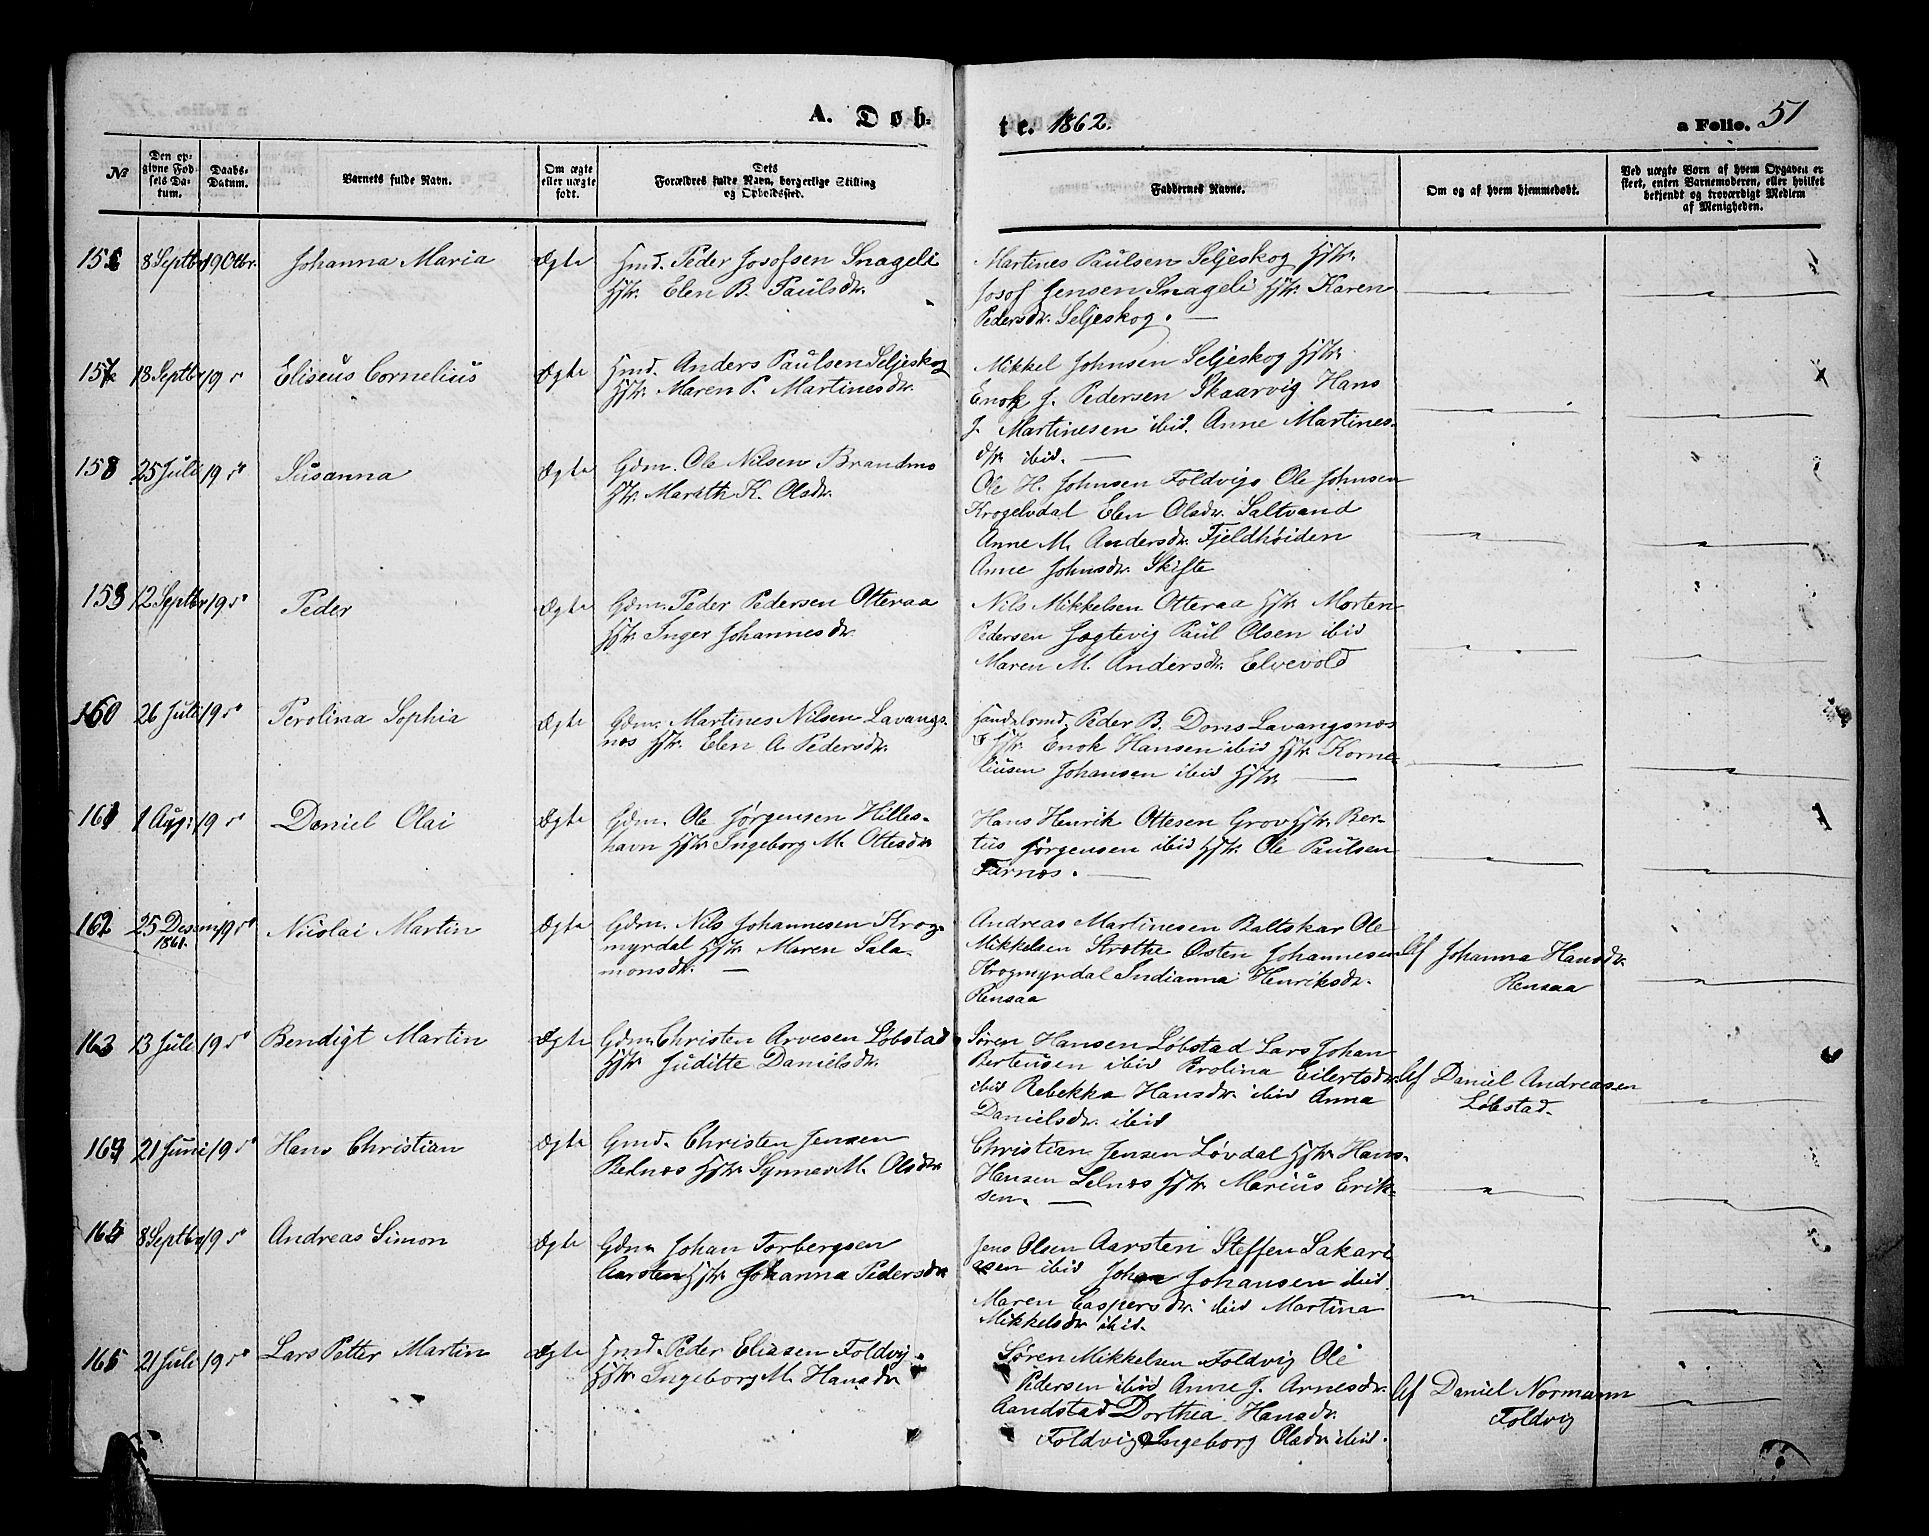 A. Døb-
te. 1862.
a Folio. 51
№
Den op-
givne Fød-
sels Da-
tum.
Daabs-
Datum.
Barnets fulde Navn.
Om ægte
eller uægte
født.
Dets
Forældres fulde Navn, borgerlige Stilling
og Opholdssted.
Faddernes Navne.
Om og af hvem hjemmedøbt.
Ved uægte Børn af hvem Opgaven er
skeet, enten Barnemoderen, eller hvilket
bekjendt og troværdigt Medlem
af Menigheden.
8 Septbr 19 Otbr. Johanna Maria Ægte Hmd. Peder Josofsen Snageli
Hstr. Elen B. Paulsdr.
Martines Paulsen Seljeskog Hstr.
Josof Jensen Snageli Hstr. Karen
Pedersdr. Seljeskog. —
157 18 Septbr 19 " Eliseus Cornelius Ægte Hmd. Anders Paulsen Seljeskog
Hstr. Maren P. Martinesdr.
Mikkel Johnsen Seljeskog Hstr.
Enok J. Pedersen Skaarvig Hans
J. Martinesen ibid. Anne Martines-
dtr ibid. —
158 25 Juli 19 " Susanna Ægte Gdm. Ole Nilsen Brandmo
Hstr. Marath K. Olsdr.
Ole H. Johnsen Foldvig Ole Johnsen
Krogelvdal Elen Olsdr. Saltvand
Anne M. Andersdr. Fjeldhøiden
Anne Johnsdr. Skifte
12 Septbr 19 " Peder Ægte Gdm. Peder Pedersen Otteraa
Hstr Inger Johannesdr.
Nils Mikkelsen Otteraa Hstr Morten
Pedersen Jægtevig Paul Olsen ibid
Maren M. Andersdr. Elvevold
160 26 Juli 19 " Perolina Sophia Ægte Gdm. Martines Nilsen Lavangs-
næs Hstr. Elen A. Pedersdr.
Handelsmd. Peder B. Dons Lavangsnæs
& Hstr. Enok Hansen ibid Hstr Korne-
liusen Johansen ibid Hstr. —
161 1 Aug: 19 " Daniel Olai Ægte Gdm. Ole Jørgensen Hilles-
havn Hstr Ingeborg M. Ottesdr
Hans Henrik Ottesen Grov Hstr. Ber-
tus Jørgensen ibid Hstr. Ole Paulsen
Farnæs. —
162 25 Desem 19 " Nicolai Martin Ægte Gdm. Nils Johannesen Krog-
1861.
myrdal Hstr. Maren Sala-
monsdr. —
Andreas Martinesen Baltskar Ole
Mikkelsen Strøthe Østen Johannesen
Krogmyrdal Indianna Henriksdr.
Rensaa
Af Johanna Hansdr.
Rensaa
163 13 Juli 19 " Bendigt Martin Ægte Gdm Christen Arvesen Løbstad
Hstr. Juditte Danielsdr.
Søren Hansen Løbstad Lars Johan
Berteusen ibid Perolina Eilertsdr.
ibid Rebekka Hansdr. ibid Anna
Danielsdr. ibid
Af Daniel Andreasen
Løbstad.
164 21 Juni 19 " Hans Christian Ægte Gmd. Christen Jensen
Rednæs Hstr. Synner M. Olsdr
Christian Jensen Løvdal Hstr. Hans
Hansen Selnæs Hstr Marius Erik-
sen. —
8 Septbr 19 " Andreas Simon Ægte Gdm Johan Torbergsen
Aarsten Hstr Johanna Pedersdr
Jens Olsen Aarsten Steffen Sakari-
asen ibid Johan Johansen ibid
Maren Caspersdr. ibid Martina
Mikkelsdr ibid.
21 Juli 19 " Lars Petter Martin Ægte Hmd. Peder Eliasen Foldvig
Hstr Ingeborg M. Hansdr
Søren Mikkelsen Foldvig Ole
Pedersen ibid Anne J. Arnesdr.
Aandstad Dorthea Hansdr.
Foldvig Ingeborg Olsdr ibid.
Af Daniel Normann
Foldvig